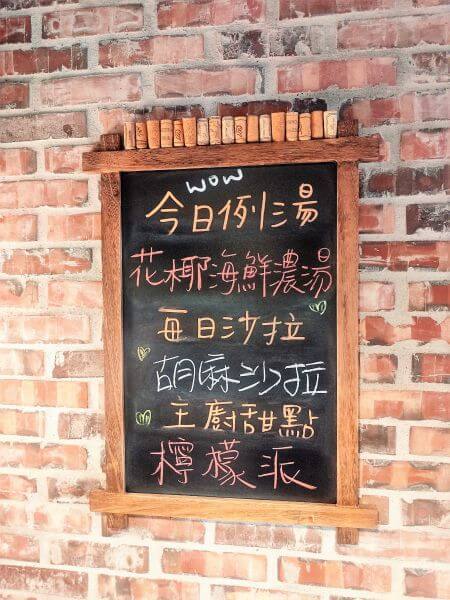 wow
今日例湯
花椰海鮮濃湯
每日沙拉
胡麻沙拉
主廚甜點
檸檬派